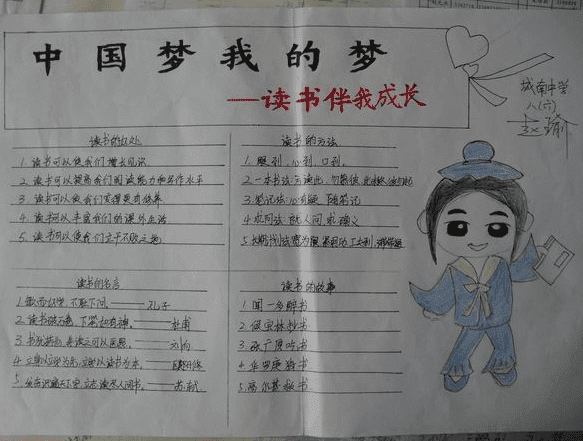 中国梦我的梦
——读书伴我成长
城南中学
八(六)
读书的好处
1. 读书可以使我们增长见识
2. 读书可以提高我们阅读能力和写作水平
3. 读书可以使我们变得更有修养
4. 读书可以丰富我们的课外生活
5. 读书可以使我们立于不败之地
读书的方法
1. 眼到, 心到, 口到.
2. 一本书法:
3. 笔记法: 随笔记
4. 求问法:
5.
读书的名言
1. 敏而好学, 不耻下问. ——孔子
2. 读书破万卷, 下笔如有神. ——杜甫
3. 书犹药也, 善读之可以医愚. ——刘向
4. 立身以立学为先, 立学以读书为本. ——欧阳修
5. 发奋识遍天下字, 立志读尽人间书. ——苏轼
读书的故事
1. 闻一多醉书
2. 侯宝林抄书
3. 张广厚吃书
4. 华罗庚猜书
5. 高尔基救书